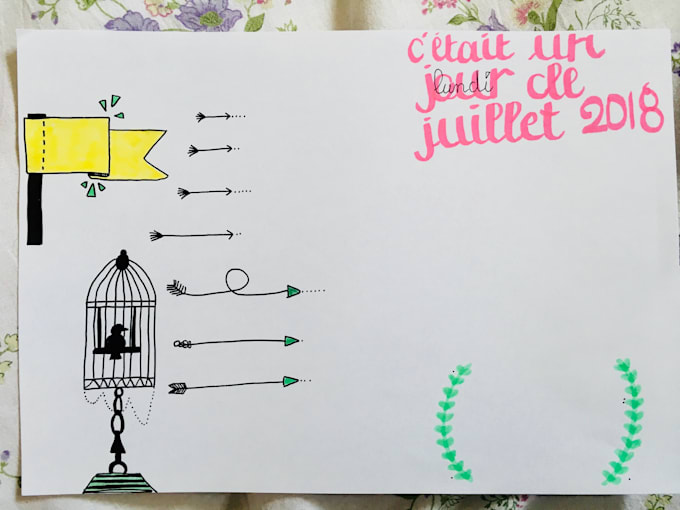 c'était un
jour de
lundi
juillet 2018